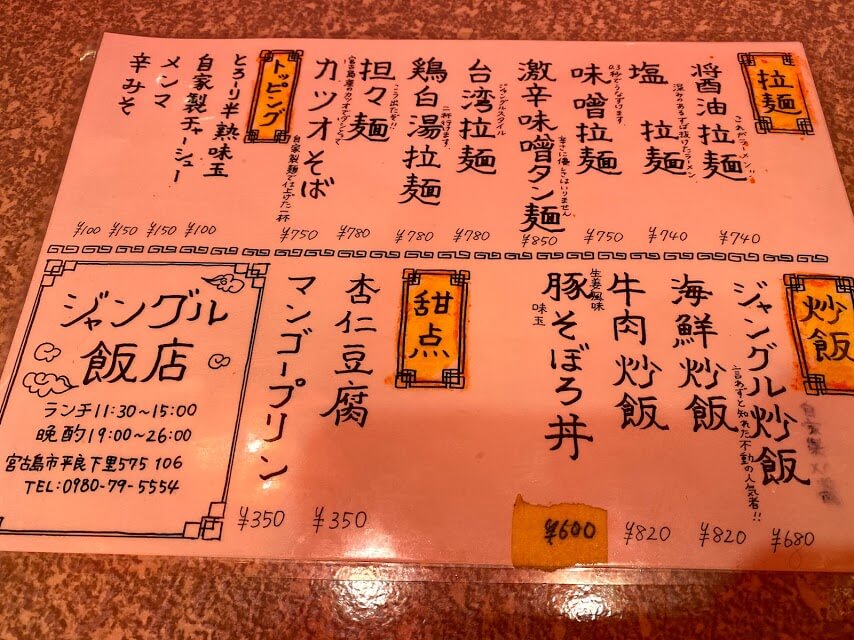 拉麺
醤油拉麺
これがラーメン!!
¥740
塩 拉麺
深みのあるずば抜けたラーメン
¥740
味噌拉麺
0.3秒でうなずけます
¥750
激辛味噌タン麺
辛さに優しさはいりません
¥850
台湾拉麺
ジャングルスタイル
¥780
鶏白湯拉麺
二杯行けます。
¥780
担々麺
こう出たか!!
¥780
カツオそば
宮古島産のカツオでダシとって
自家製麺で仕上げた一杯
¥750
トッピング
とろーり半熟味玉
¥100
自家製チャーシュー
¥150
メンマ
¥150
辛みそ
¥100
炒飯
ジャングル炒飯
言わずと知れた不動の人気者!!
¥680
海鮮炒飯
¥820
牛肉炒飯
¥820
生姜風味
豚そぼろ丼
味玉
¥600
甜点
杏仁豆腐
¥350
マンゴープリン
¥350
ジャングル
飯店
ランチ11:30~15:00
晩酌19:00~26:00
宮古島市平良下里575 106
TEL:0980-79-5554